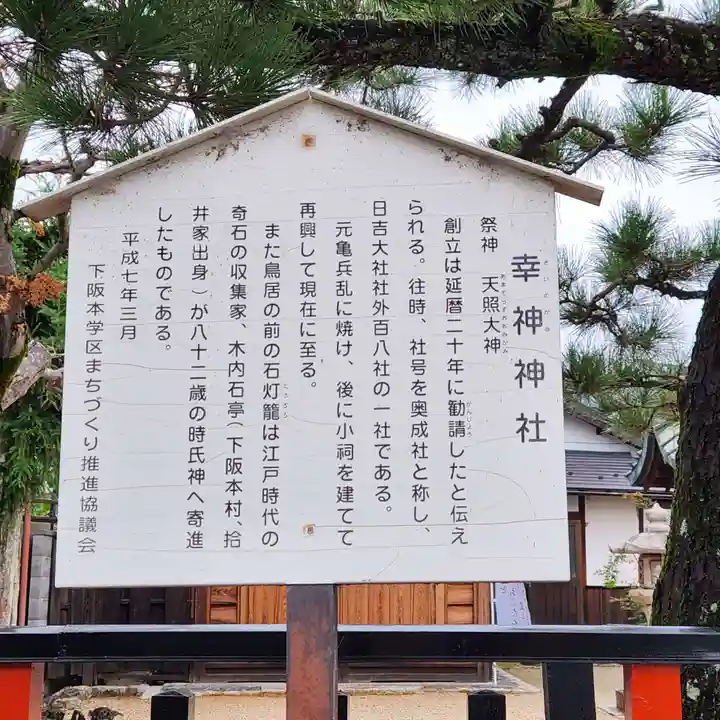 幸神神社
祭神　天照大神
創立は延暦二十年に勧請したと伝え
られる。往時、社号を奥成社と称し、
日吉大社社外百八社の一社である。
元亀兵乱に焼け、後に小祠を建てて
再興して現在に至る。
また鳥居の前の石灯籠は江戸時代の
奇石の収集家、木内石亭（下阪本村、拾
井家出身）が八十二歳の時氏神へ寄進
したものである。
平成七年三月
下阪本学区まちづくり推進協議会